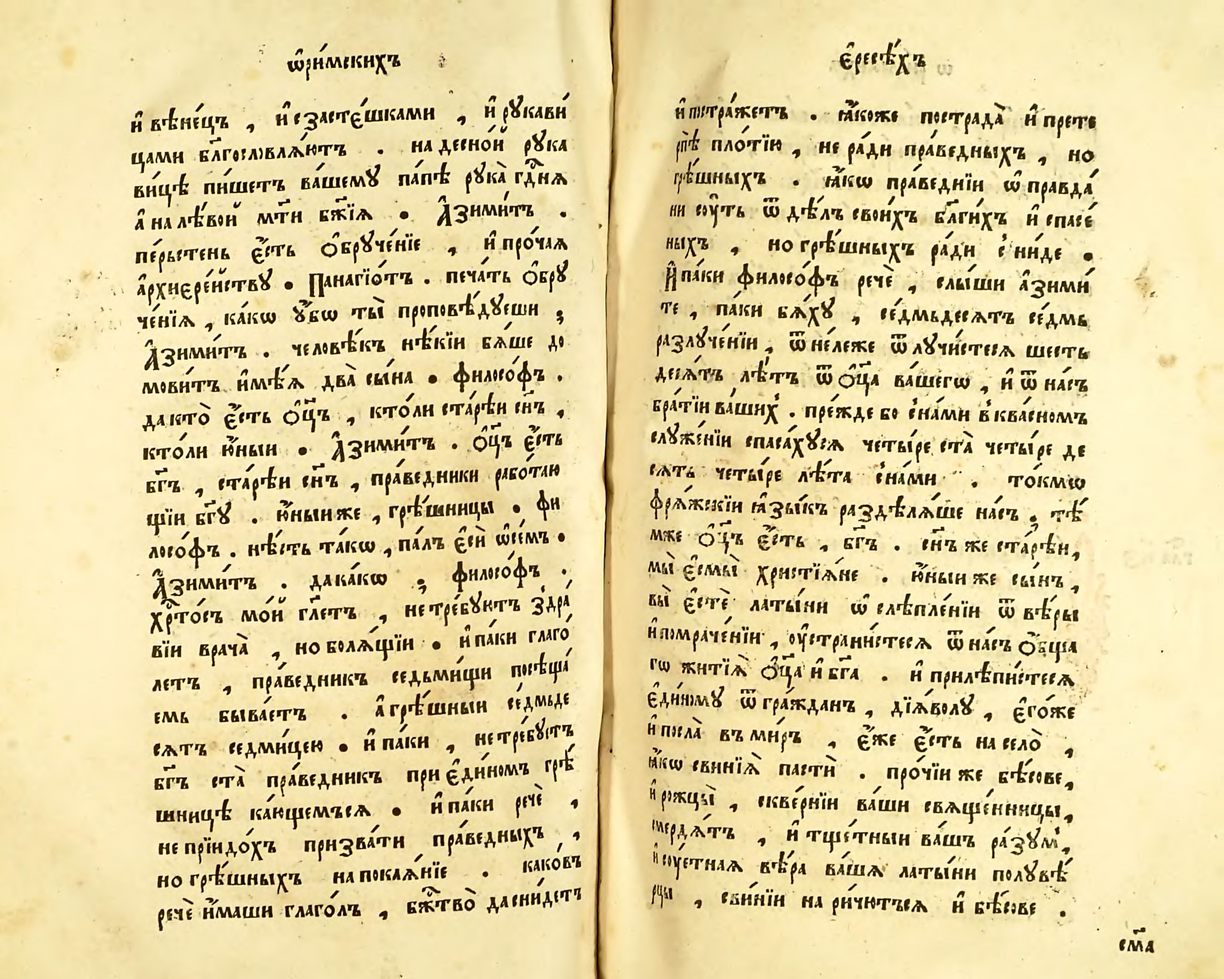 ѡ҆ ри́мскихъ
и҆ вѣне́цъ , и҆ с застє́шками , и҆ рꙋкави́
цами бл҃гословлѧ́ютъ . на десно́й рꙋка
вицѣ пишетъ ва́шемꙋ па́пѣ рꙋка̀ гдⷭ҇нѧ
а҆ на лѣ́вой мт҃и бж҃їѧ . А҆зими́тъ .
пе́рьстень є҆́сть ѻ҆брꙋче́нїе , и҆ про́чаѧ
а҆рхиєре́йствꙋ . Панагїо́тъ . печа́ть ѻ҆брꙋ
че́нїѧ , ка́кѡ ꙋ҆́бѡ ты̀ проповѣ́дꙋеши ;
А҆зими́тъ . человѣ́къ нѣ́кїи бѧ́ше до
мови́тъ и҆мѣ́ѧ два̀ сы́на . фило́со́фъ .
да кто̀ є҆́сть ѻ҆ц҃ъ , кто́ли ста́рѣи сн҃ъ ,
кто́ли ю҆́ныи . А҆зими́тъ . ѻ҆ц҃ъ є҆́сть
бг҃ъ , ста́рѣи сн҃ъ , пра́ведники рабо́таю
щїи бг҃ꙋ . ю҆́ныи же , грѣ́шницы . фи
лосо́фъ . нѣ́сть та́кѡ , па́лъ є҆сѝ ѡ҆се́мъ .
А҆зими́тъ . да ка́кѡ ; филосо́фъ .
хрⷭ҇то́съ мо́й гл҃етъ , не тре́бꙋютъ здра́
вїи врача̀ , но болѧ́щїи . и҆ па́ки глаго́
летъ , пра́ведникъ седьми́щи посѣща́
емь быва́етъ . а҆ грѣ́шныи се́дмьде
сѧтъ седми́цею . и҆ па́ки , не тре́бꙋетъ
бг҃ъ ста̀ пра́ведникъ при є҆ди́номъ грѣ́
шницѣ ка́ющемъсѧ . и҆ па́ки рече̏ ,
не прїидо́хъ призва́ти пра́ведныхъ ,
но грѣ́шныхъ на покаѧ́нїе . како́въ
рече̏ и҆́маши глаго́лъ , бжⷭ҇тво̀ да сни́детъ
є҆́ресѣ́хъ
и҆ постра́жетъ . ꙗ҆́коже пострада̀ и҆ прете
рпѣ̀ пло́тїю , не ра́ди пра́ведныхъ , но
грѣ́шныхъ . ꙗ҆́кѡ пра́веднїи ѡ҆правда́
ни сꙋ́ть ѿ дѣ́лъ свои́хъ бл҃ги́хъ и҆ спасе́
ныхъ , но грѣ́шныхъ ра́ди сни́де .
И҆ па́ки филосо́фъ рече̏ , слы́ши а҆зими́
те , па́ки бѧ́хꙋ , се́дмьдесѧтъ се́дмь
разлꙋче́нїи , ѿне́леже ѿлꙋчи́стесѧ ше́сть
десѧ́тъ лѣ́тъ ѿ ѻ҆ц҃а ва́шегѡ , и҆ ѿ на́съ
бра́тїи ва́шихъ . пре́жде бо с на́ми в ква́сномъ
слꙋже́нїи спаса́хꙋсѧ четы́ре ста̀ четы́ре де
сѧть четы́ре лѣ́та с на́ми . то́кмѡ
фрѧ́жскїи ꙗ҆зы́къ раздѣлѧ́ше на́съ . тѣ́
мже ѻ҆ц҃ъ є҆́сть , бг҃ъ . сн҃ъ же ста́рѣи ,
мы̀ є҆смы̀ христїѧ́не . ю҆́ныи же сы́нъ ,
вы̀ є҆стѐ латы́ни ѡ҆слѣпле́нїи ѿ вѣ́ры
и҆ помраче́нїи , ѹ҆страни́стесѧ ѿ на́съ ѻ҆́бща
гѡ житїѧ̀ ѻ҆ц҃а и҆ бг҃а . и҆ прилѣпи́стесѧ
є҆ди́номꙋ ѿ гра́жданъ , дїѧ́волꙋ , є҆го́же
и҆ посла̀ въ ми́ръ , є҆́же є҆́сть на село̀ ,
ꙗ҆́кѡ свинїѧ̀ пастѝ . про́чїи же бѣ́сове ,
и҆ рожцы̀ , скве́рнїи ва́ши свѧще́нницы ,
смердѧ́тъ , и҆ тще́тныи ва́шъ ра́зꙋмъ ,
и҆ сꙋ́етнаѧ вѣ́ра ва́шѧ латы́ни полꙋвѣ́
рцы , свинїи на ричю́тъсѧ и҆ бѣ́сове .
см҃а